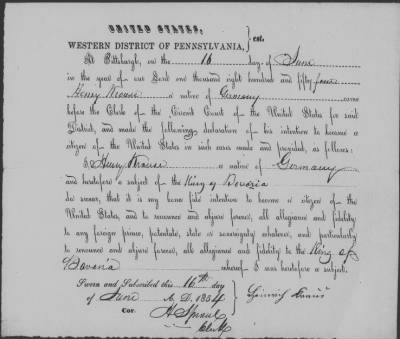 UNITED STATES,
WESTERN DISTRICT OF PENNSYLVANIA, } sst.
At Pittsburgh, on the 16 day of June
in the year of our Lord one thousand eight hundred and fifty four
Henry Krause a native of Germany came
before the Clerk of the Circuit Court of the United States for said
District, and made the following declaration of his intention to become a
citizen of the United States in such cases made and provided, as follows:
I, Henry Krause a native of Germany
and heretofore a subject of the King of Bavaria
do swear, that it is my bona fide intention to become a citizen of the
United States, and to renounce and abjure forever, all allegiance and fidelity
to any foreign prince, potentate, state or sovereignty whatever, and particularly
to renounce and abjure forever, all allegiance and fidelity to the King of
Bavaria whereof I was heretofore a subject.
Sworn and Subscribed this 16th day
of June A. D. 1854 } Heinrich Kraus
Cor. H Sproul
Clerk